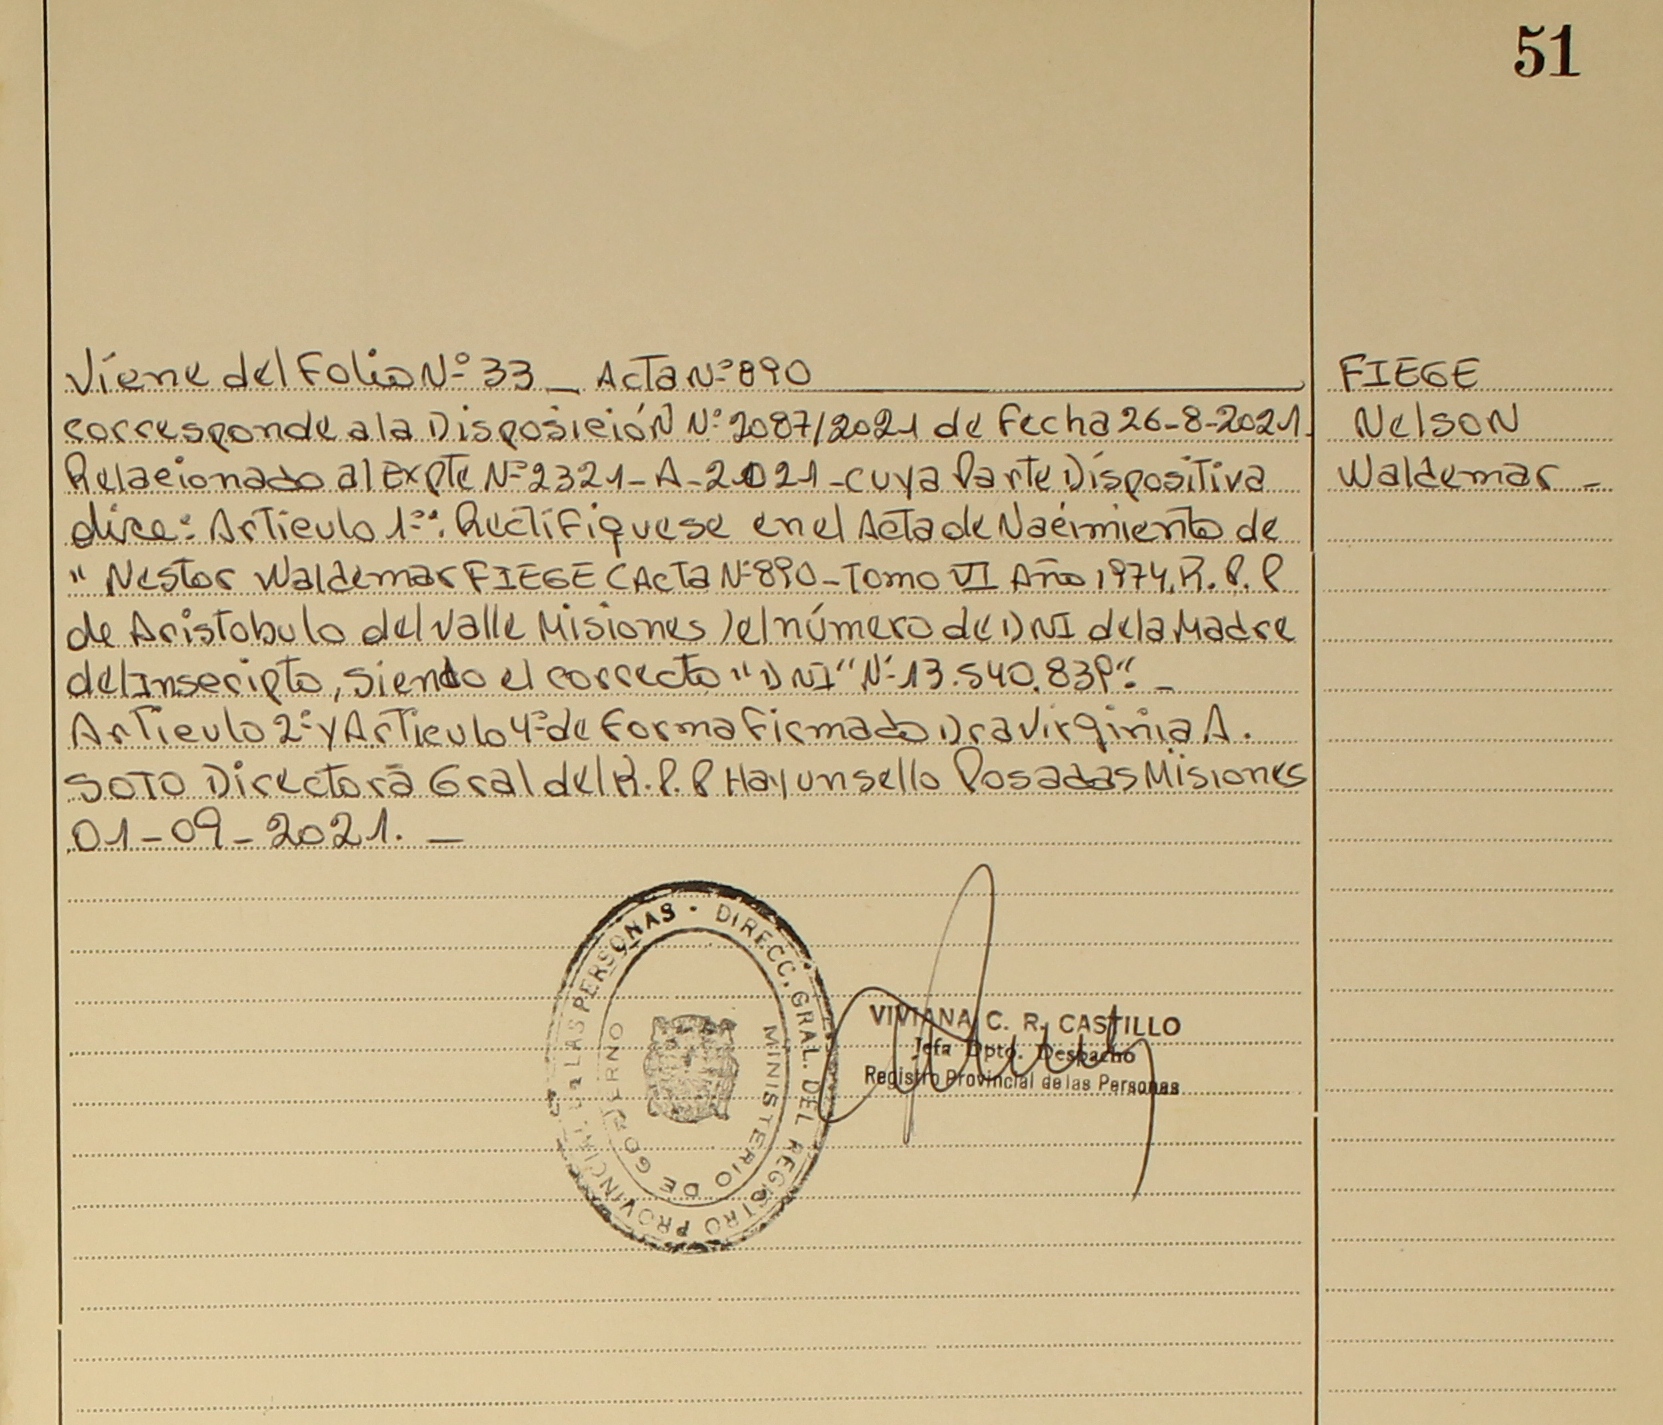 51
Viene del Folio Nº 33 _ Acta Nº 890
FIEGE
corresponde a la Disposición Nº 2087/2021 de fecha 26-8-2021.
Nelson
Relacionado al Expte Nº 2321-A-2021 - cuya Parte Dispositiva
Waldemar -
dice: Articulo 1º: Rectifiquese en el Acta de Nacimiento de
" Nestor Waldemar FIEGE (Acta Nº 890 - Tomo VI Año 1974, R.P.P
de Aristobulo del Valle Misiones) el número de DNI de la Madre
del Inscripto, siendo el correcto "DNI" Nº 13.540.839".-
Articulo 2º y Articulo 4º de forma firmado Dra Virginia A.
SOTO Directora Gral del R.P.P Hay un sello Posadas Misiones
01-09-2021. -
DIRECC. GRAL. DEL REGISTRO PROVINCIAL DE LAS PERSONAS ·
MINISTERIO DE GOBIERNO
VIVIANA C. R. CASTILLO
Jefa Dpto. Despacho
Registro Provincial de las Personas